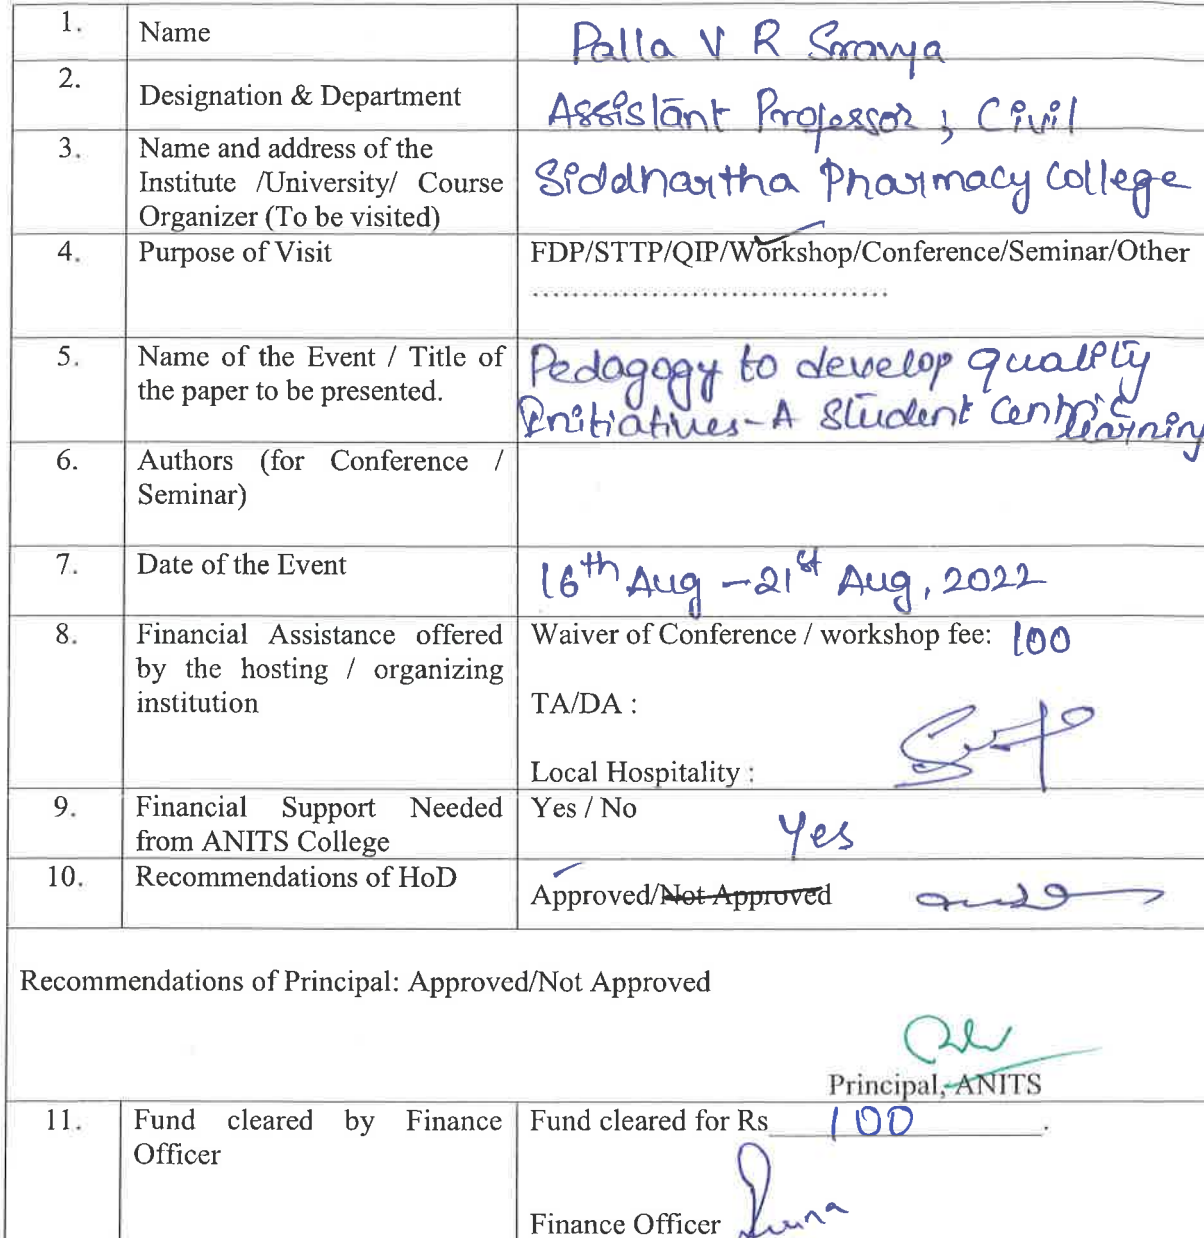 1. Name Palla V R Sravya
2. Designation & Department Assistant Professor, Civil
3. Name and address of the
Institute /University/ Course
Organizer (To be visited)
Siddhartha Pharmacy College
4. Purpose of Visit FDP/STTP/QIP/Workshop/Conference/Seminar/Other
....................................
5. Name of the Event / Title of
the paper to be presented.
Pedagogy to develop quality
Initiatives-A Student Centric
learning
6. Authors (for Conference /
Seminar)
7. Date of the Event 16th Aug - 21st Aug, 2022
8. Financial Assistance offered
by the hosting / organizing
institution
Waiver of Conference / workshop fee: 100
TA/DA :
Local Hospitality :
9. Financial Support Needed
from ANITS College
Yes / No
Yes
10. Recommendations of HoD Approved/Not Approved
Recommendations of Principal: Approved/Not Approved
Principal, ANITS
11. Fund cleared by Finance
Officer
Fund cleared for Rs 100.
Finance Officer